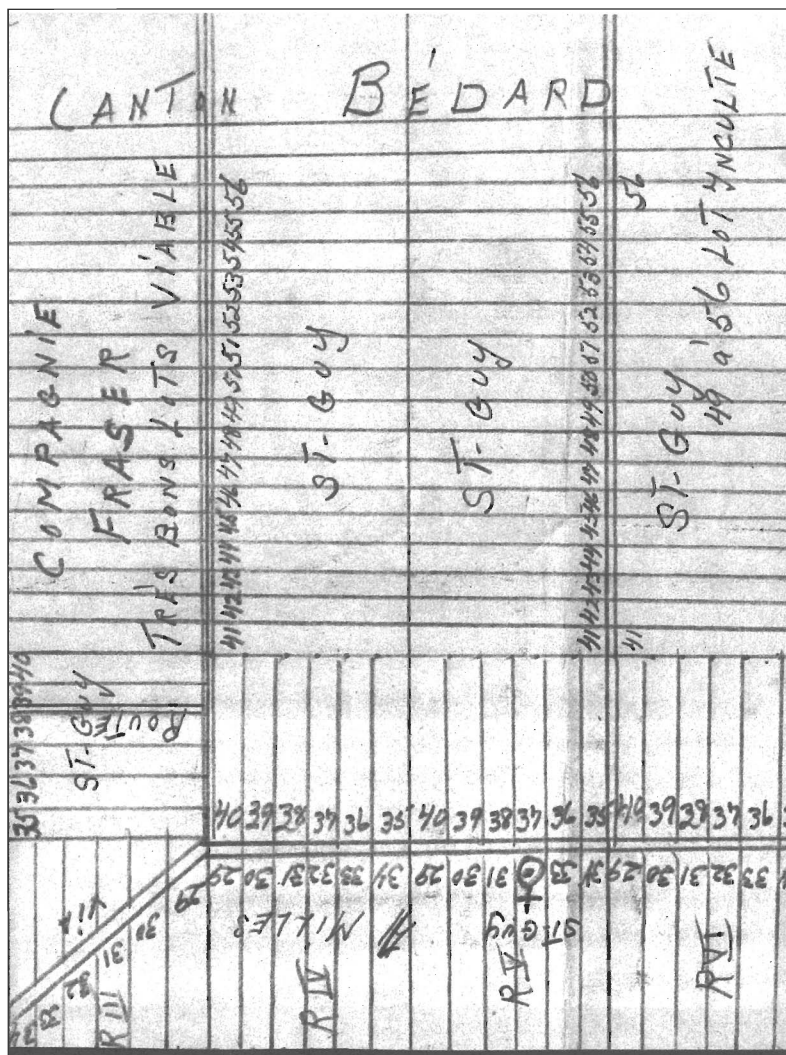 CANTON BÉDARD
COMPAGNIE
FRASER
TRÈS BONS LOTS VIABLE
41 42 43 44 45 46 47 48 49 50 51 52 53 54 55 56
ST-GUY
ST-GUY
41 42 43 44 45 46 47 48 49 50 51 52 53 54 55 56
41
56
ST-GUY
49 a 56 LOT YNCULTE
35 36 37 38 39 40
ST-GUY
ROUTE
40 39 38 37 36 35 40 39 38 37 36 35 40 39 38 37 36
29 30 31 32 33 34 29 30 31 33 34 29 30 31 32 33
29
30
31
32
33
34
MILLES
ST GUY
R III
R IV
R V
R VI